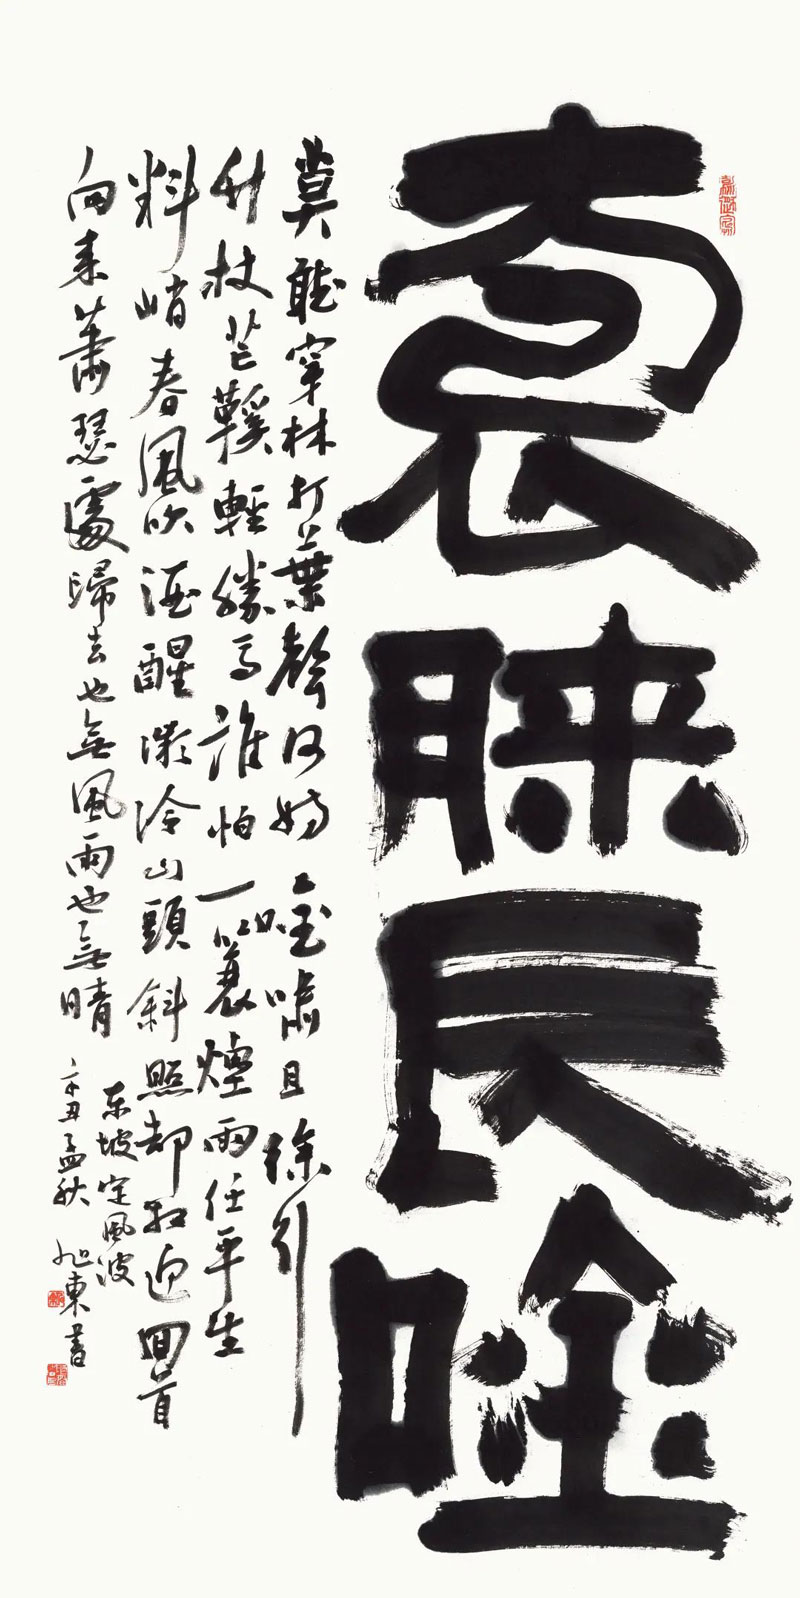 袁睞長唫
莫聽穿林打葉聲何妨唫嘯且徐行
竹杖芒鞵輕勝馬誰怕一蓑煙雨任平生
料峭春風吹酒醒微冷山頭斜照却相迎回首
向來蕭瑟處歸去也無風雨也無晴
東坡定風波
辛丑孟秋旭東書